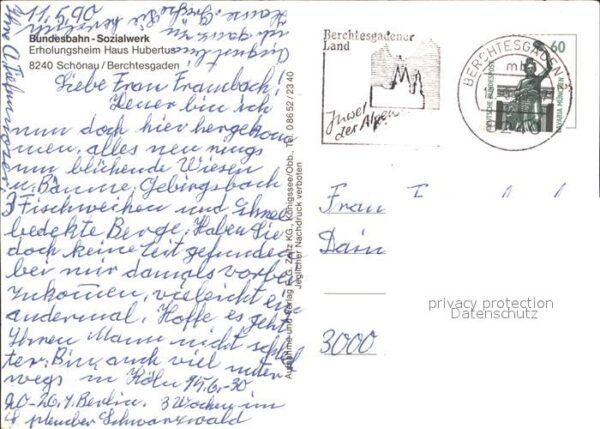 Bundesbahn-Sozialwerk
Erholungsheim Haus Hubertus
8240 Schönau / Berchtesgaden
Liebe Frau Frambach!
Heuer bin ich
nun doch hier hergekom
men, alles neu rings
um blühende Wiesen
u. Bäume, Gebirgsbach
3 Fischweiher und schnee
bedekte Berge. Haben Sie
doch keine Zeit gefunden
bei mir damals vorbei
zukommen, vielleicht ein
andermal. Hoffe es geht
Ihrem Mann nicht schlech
ter. Bin auch viel unter
wegs in Köln 15.6.-30
20-26.7. Berlin. 3 Wochen im
September Schwarzwald
Aufnahme und Verlag F. G. Zeitz KG., Königssee/Obb., Tel. 08652/2340
Jeglicher Nachdruck verboten
Berchtesgadener
Land
Insel
der Alpen
BERCHTESGADEN
mb
60
DEUTSCHE BUNDESPOST
BAVARIA MÜNCHEN
Frau
3000
privacy protection
Datenschutz